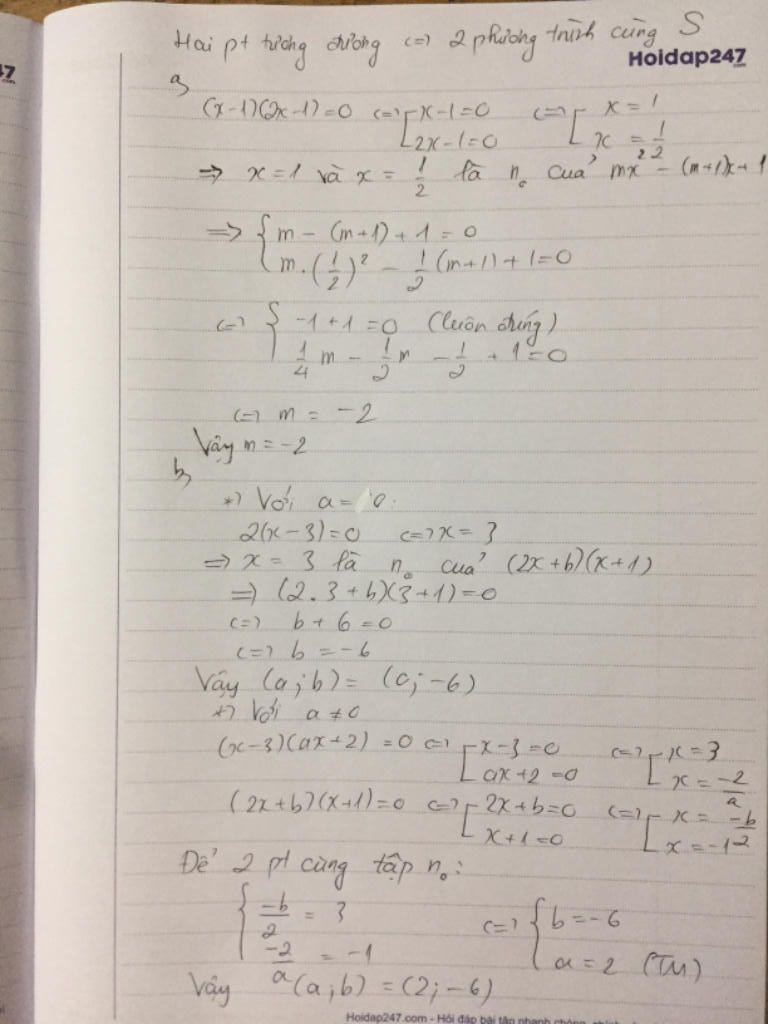 Hai pt tương đương <=> 2 phương trình cùng S
Hoidap247
.com
47
a,
(x-1)(2x-1)=0 <=> [x-1=0 <=> [x=1
2x-1=0 x=1/2
=> x=1 và x=1/2 là n₀ của mx² - (m+1)x+1
=> {m-(m+1)+1=0
m.(1/2)² - 1/2(m+1)+1=0
<=> {-1+1=0 (luôn đúng)
1/4m - 1/2m - 1/2 + 1=0
<=> m = -2
Vậy m=-2
b,
*) Với a=0.
2(x-3)=0 <=> x=3
=> x=3 là n₀ của (2x+b)(x+1)
=> (2.3+b)(3+1)=0
<=> b+6=0
<=> b=-6
Vậy (a;b)=(0;-6)
*) Với a≠0
(x-3)(ax+2)=0 <=> [x-3=0 <=> [x=3
ax+2=0 x=-2/a
(2x+b)(x+1)=0 <=> [2x+b=0 <=> [x=-b/2
x+1=0 x=-1
Để 2 pt cùng tập n₀:
{-b/2=3 <=> {b=-6
-2/a=-1 a=2 (TM)
Vậy (a;b)=(2;-6)
Hoidap247.com - Hỏi đáp bài tập nhanh chóng,